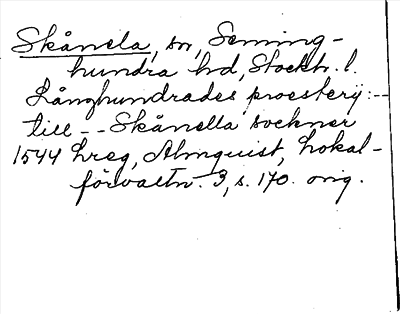 Skånela, sn, Seming-
hundra hd, Stockh. l.
Långhundrades proesterij: --
till -- Skånella sockner
1544 Lreg, Almquist, Lokal-
förvaltn. 3, s. 170. orig.